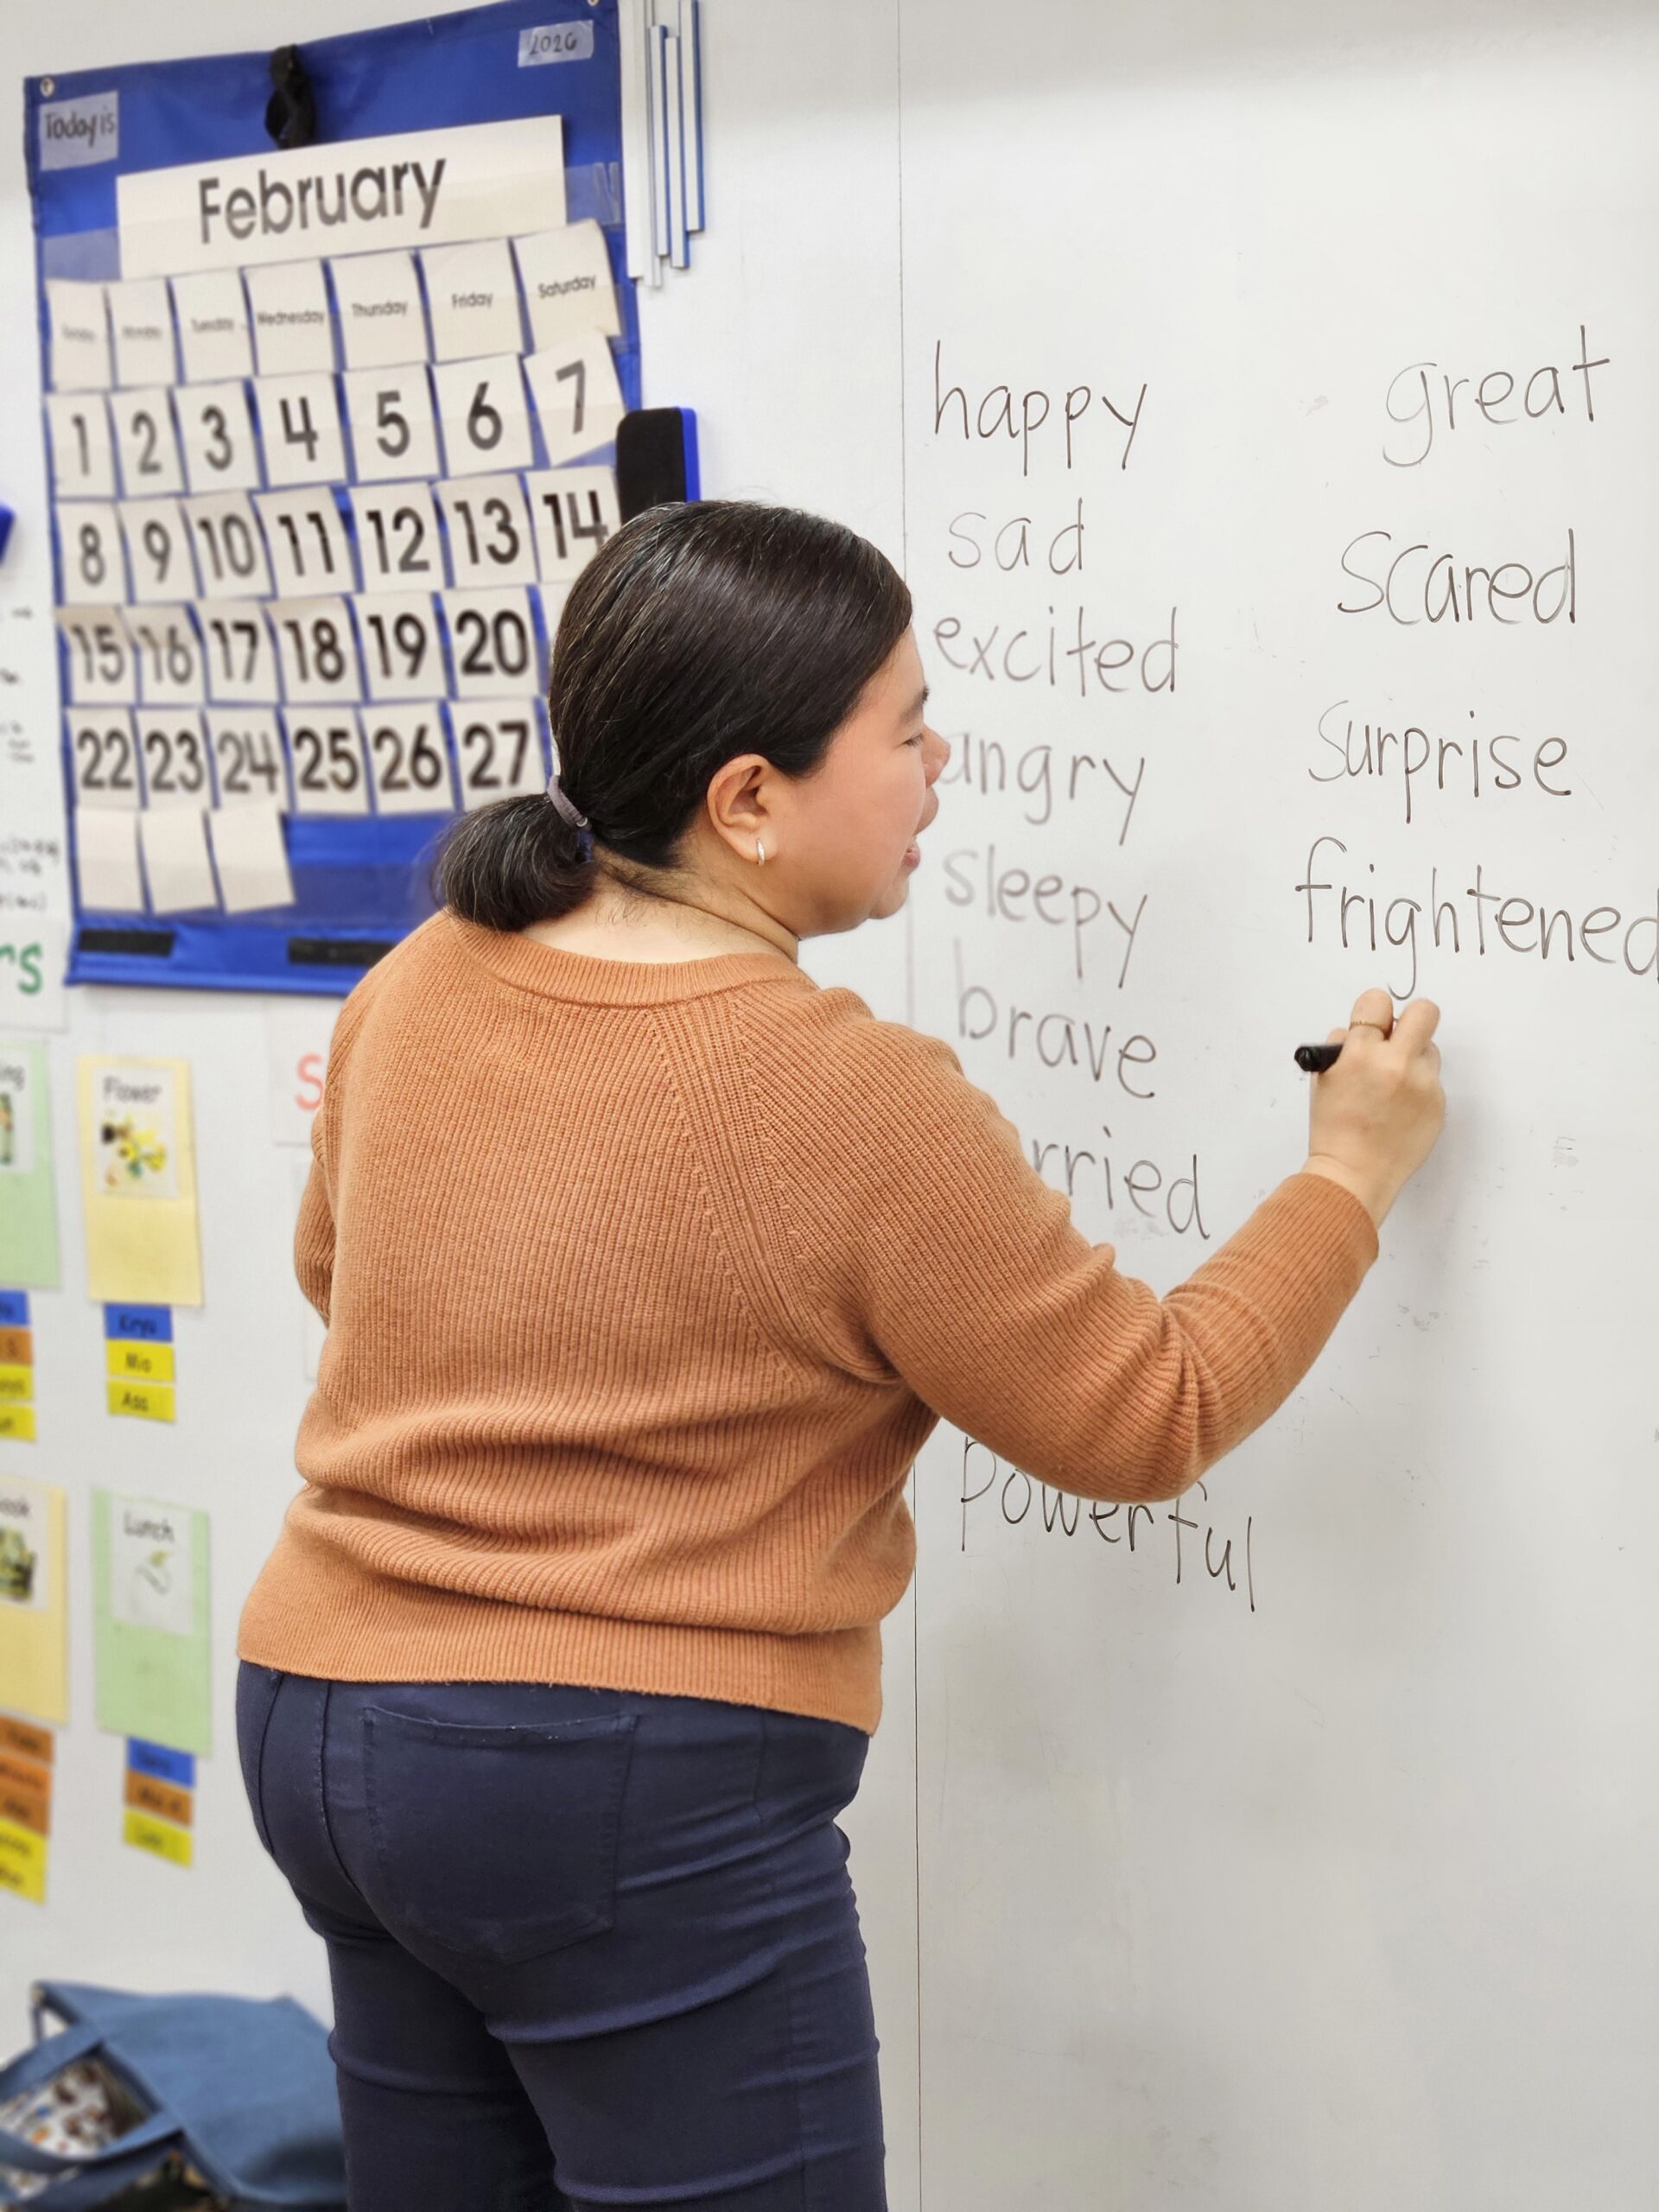 2026
Today is
February
Tuesday Wednesday Thursday Friday Saturday
1 2 3 4 5 6 7
8 9 10 11 12 13 14
15 16 17 18 19 20
22 23 24 25 26 27
happy
sad
excited
angry
sleepy
brave
rried
powerful
great
scared
surprise
frightened
rs
S
Flower
Mio
Lunch